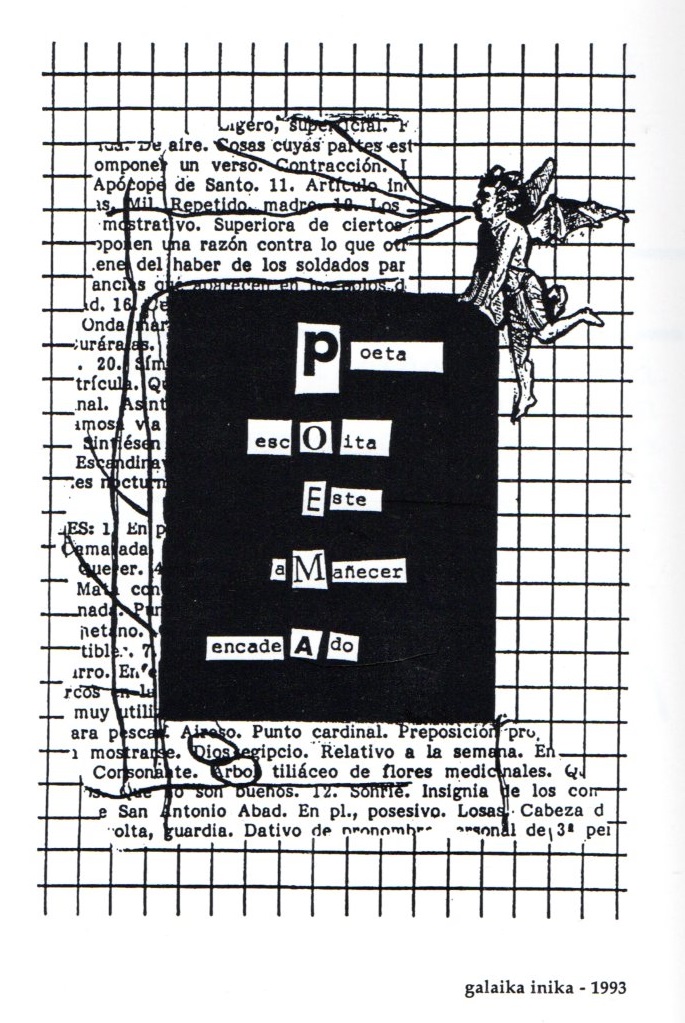 Ligero, superficial. F
De aire. Cosas cuyas partes est
omponer un verso. Contracción. I
Apócope de Santo. 11. Artículo in
as. Mil. Repetido, madre. 18. Los
mostrativo. Superiora de ciertos
oponen una razón contra lo que ot
ene del haber de los soldados par
ancias que aparecen en los
d. 16.
Onda mar
uráralas.
. 20. Sím
trícula. Qu
nal. Asint
amosa vía
Sintiésen
Escandinav
es nocturn
Poeta
escOita
Este
aMañecer
encadeAdo
ES: 1. En p
Camarada
querer. 4
Mata con
nada. Pun
netano.
tible. 7.
arro. En
rcos en la
muy utili
ara pescar. Airoso. Punto cardinal. Preposición pro
mostrarse. Dios egipcio. Relativo a la semana. En
Consonante. Arbol tiliáceo de flores medicinales. Qu
que no son buenos. 12. Sonríe. Insignia de los con
e San Antonio Abad. En pl., posesivo. Losas. Cabeza d
olta, guardia. Dativo de pronombre personal de 3ª per
galaika inika - 1993